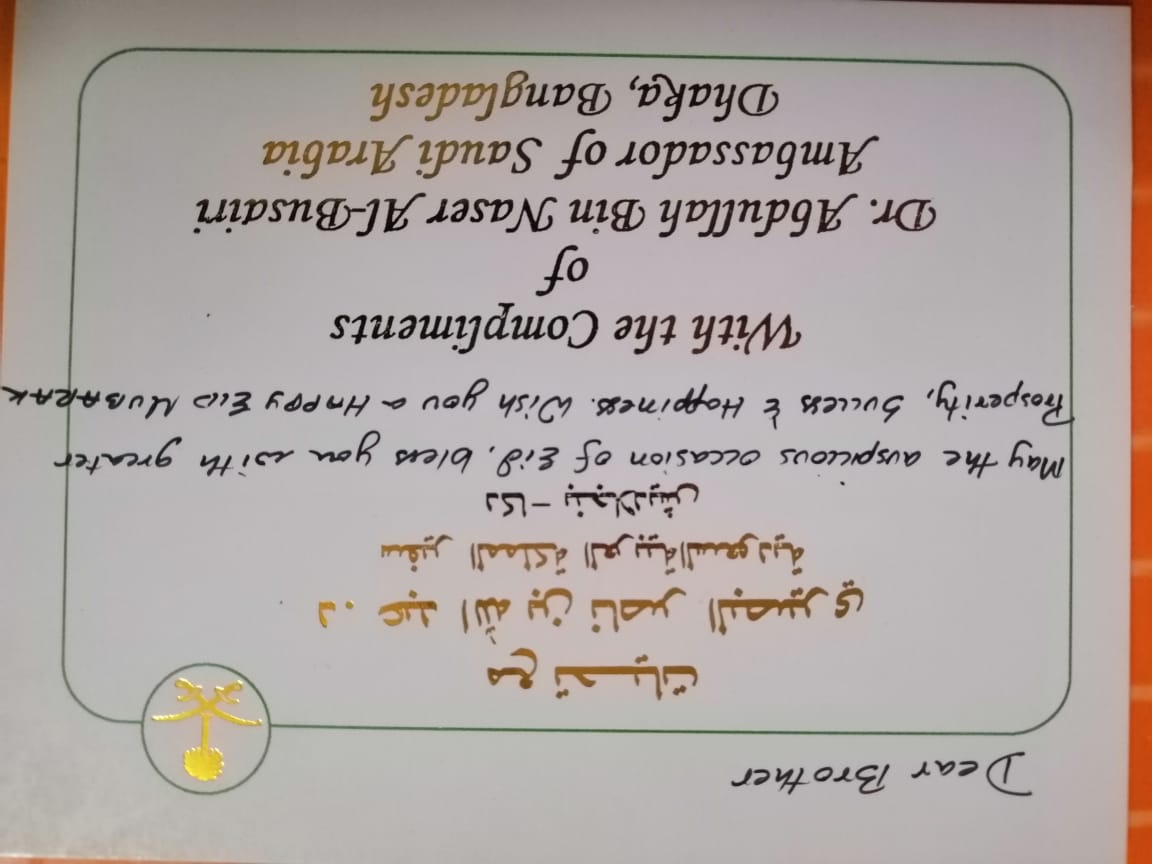 Dear Brother
مع تحيات
د. عبد الله بن ناصر البصيري
سفير المملكة العربية السعودية
دكا - بنجلاديش
May the auspicious occasion of Eid, bless you with greater
Prosperity, Success & Happiness. Wish you a HAPPY EID MUBARAK
With the Compliments
of
Dr. Abdullah Bin Naser Al-Busairi
Ambassador of Saudi Arabia
Dhaka, Bangladesh